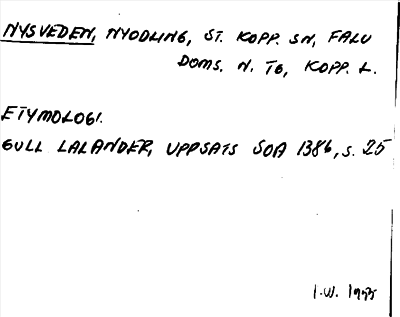 NYSVEDEN, NYODLING, ST. KOPP. SN, FALU
DOMS. N. TG, KOPP. L.
ETYMOLOGI.
GULL LALANDER, UPPSATS SOA 1386, S. 25
I.W. 1975